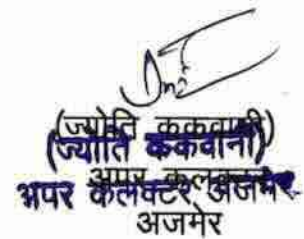 (ज्योति ककवानी)
(ज्योति ककवानी)
अपर कलक्टर
अपर कलक्टर, अजमेर
अजमेर